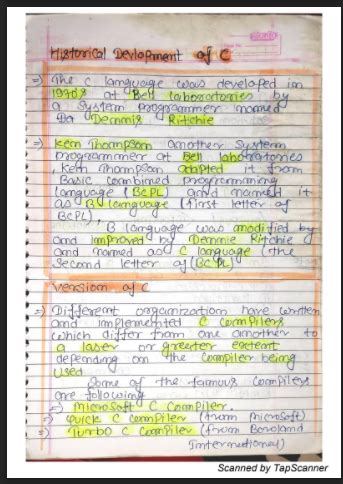 Historical Devlopment of C
=) The C language was developed in
1970's at Bell laboratories by
a System programmer named
Da Dennis Ritchie
=) Ken Thompson another System
programmer at Bell laboratories
, Ken Thompson adapted it from
basic combined programming
language (BCPL) and named it
as B language (first letter of
BCPL).
B language was modified by
and improved by Dennie Ritchie
and named as C language (the
Second letter of (BCPL)
Version of C
=) Different organization have written
and implemented C Compilers
which differ from one another to
a laser or greater extent
depending on the Compiler being
used
Some of the famous Compilers
are following
=) Microsoft C Compiler
=) Quick C Compiler (from Microsoft)
=) Turbo C Compiler (from Boroland
International)
Scanned by TapScanner